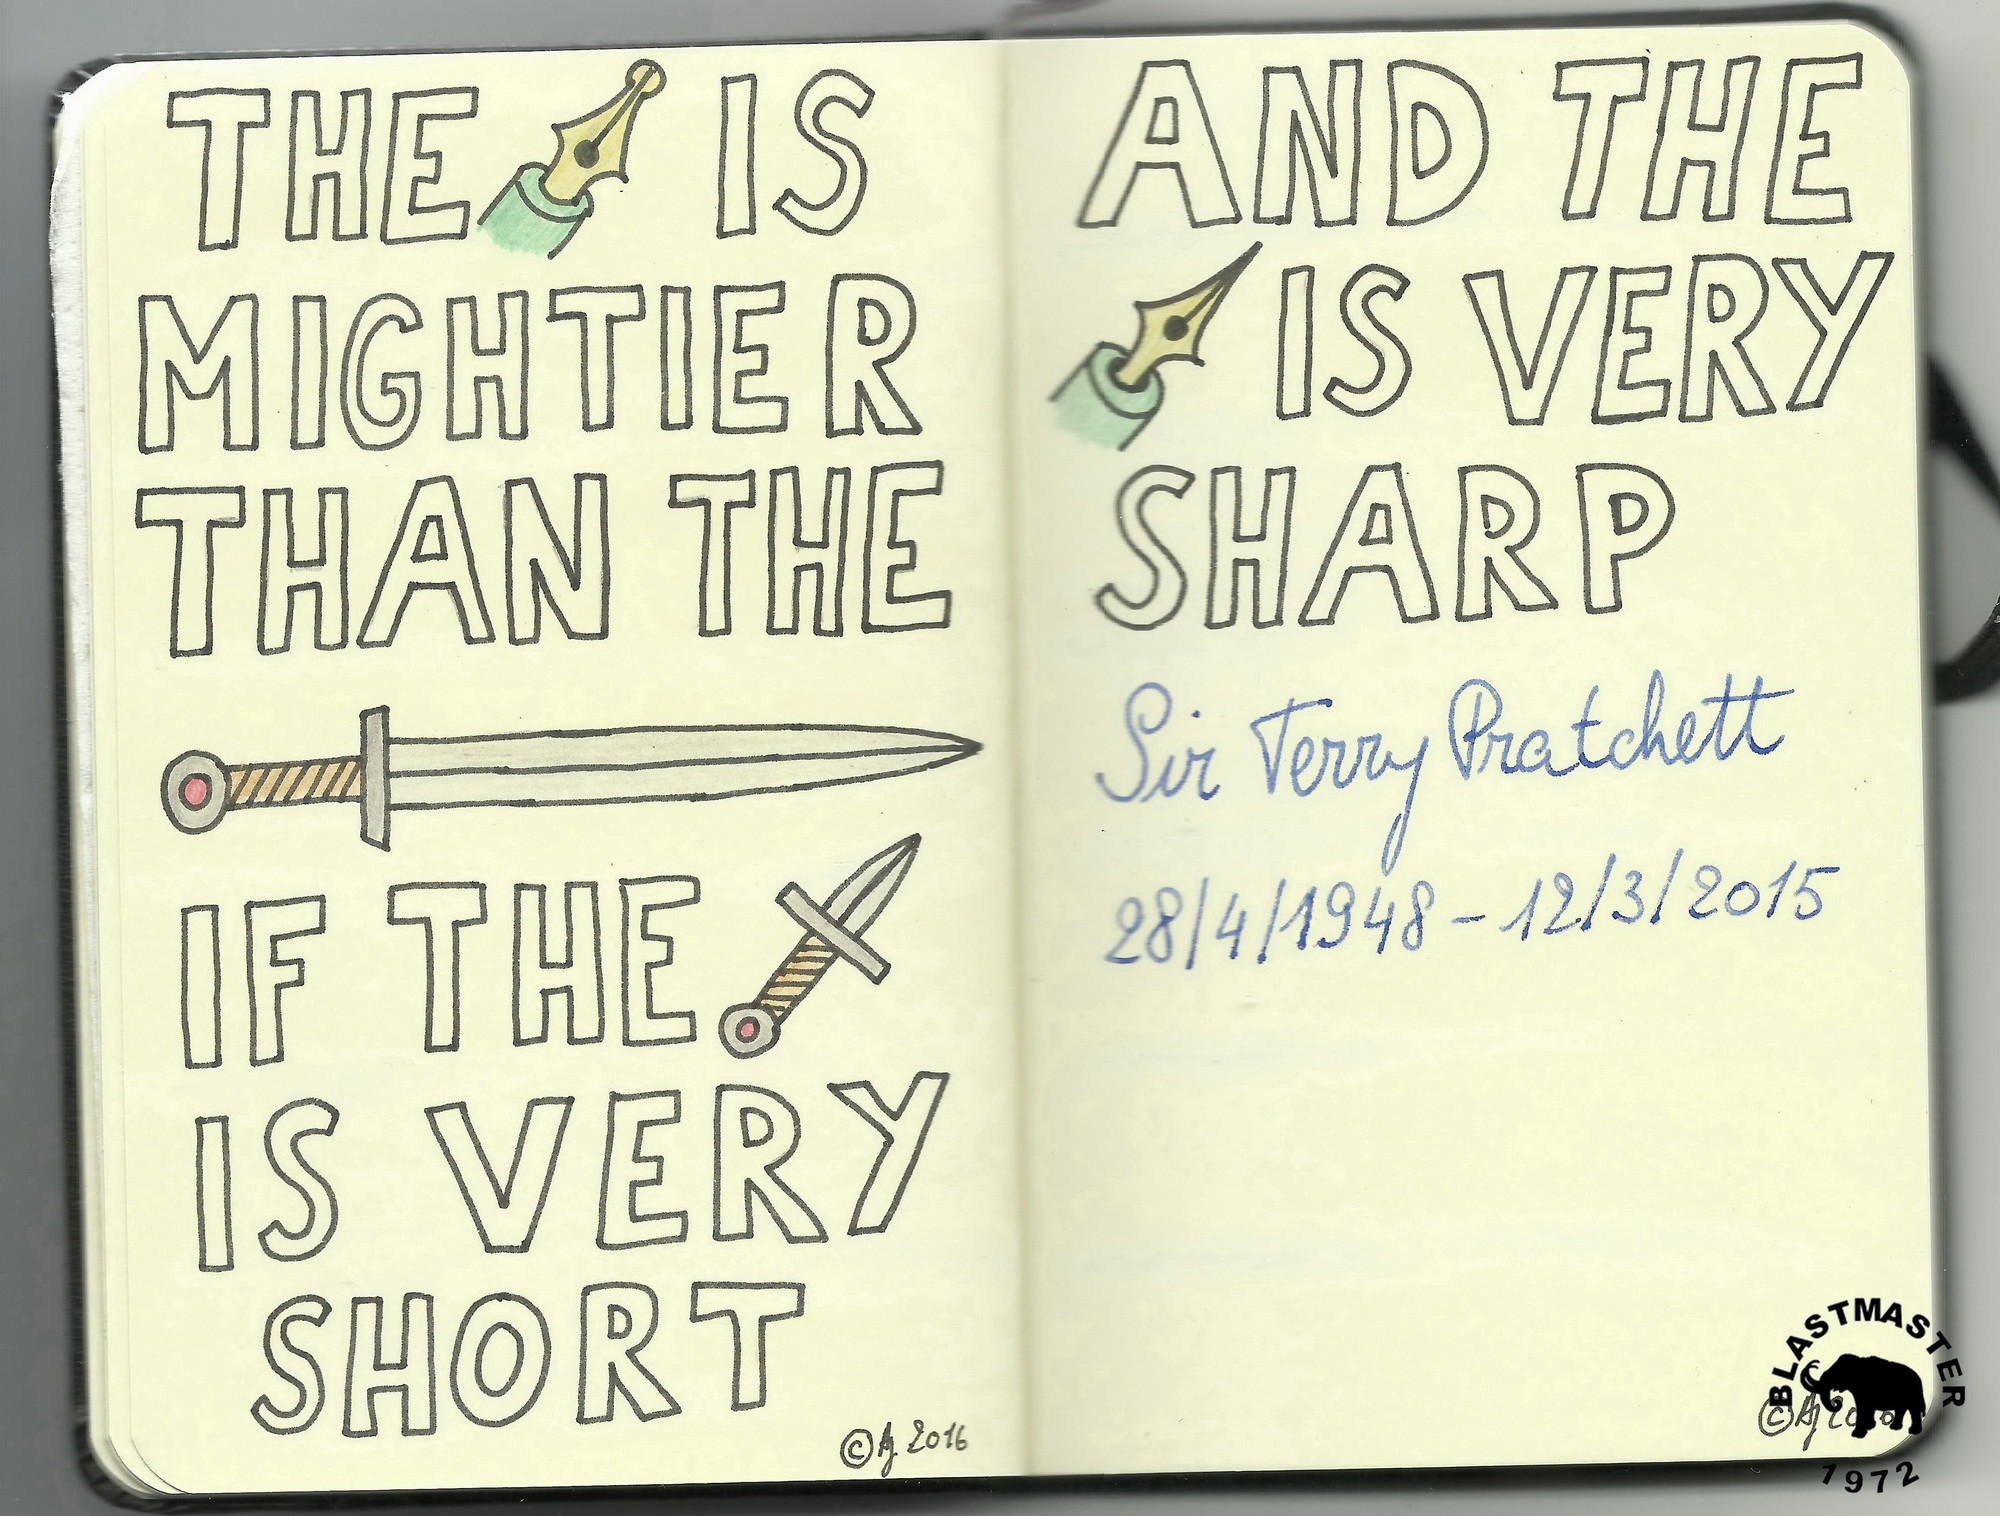 THE IS
MIGHTIER
THAN THE
IF THE
IS VERY
SHORT
© Aj 2016
AND THE
IS VERY
SHARP
Sir Terry Pratchett
28/4/1948 - 12/3/2015
BLASTMASTER
© Aj
1972